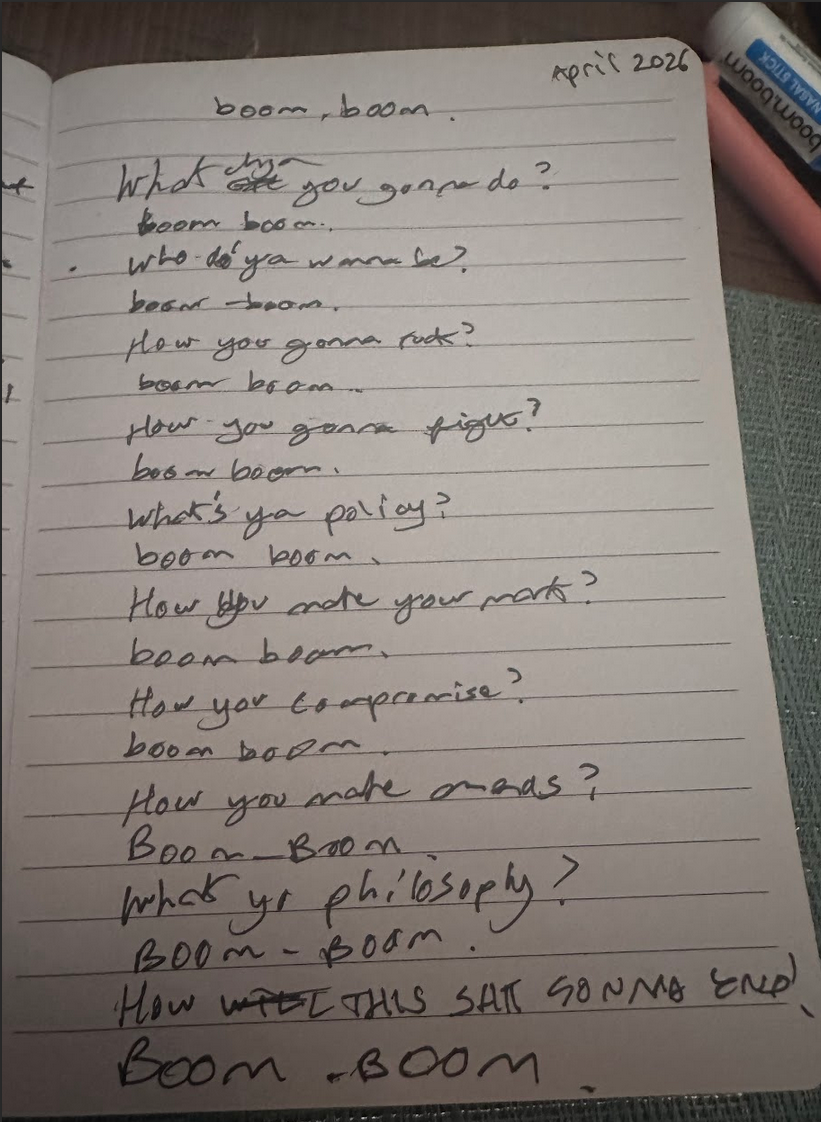 April 2026
boom, boom.
What chya you gonna do?
boom boom.
Who do ya wanna be?
boom - boom.
How you gonna rock?
boom boom.
How you gonna fight?
boom boom.
What's ya policy?
boom boom.
How you make your mark?
boom boom.
How you compromise?
boom boom.
How you make amends?
Boom - Boom.
What yr philosophy?
BOOM - BOOM.
How THIS SHIT GONNA END
BOOM - BOOM.
boomboom
NASAL STICK